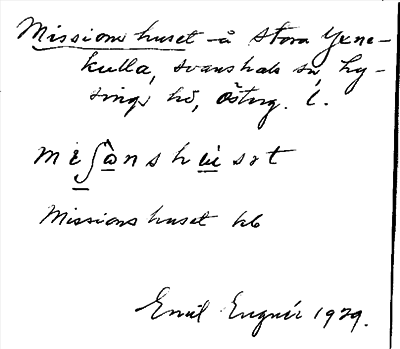 Missionshuset å Stora Yxne-
kulla, Svanshals sn, Ly-
sings hd, Österg. l.
Missionshuset hb
Emil Engnér 1929.